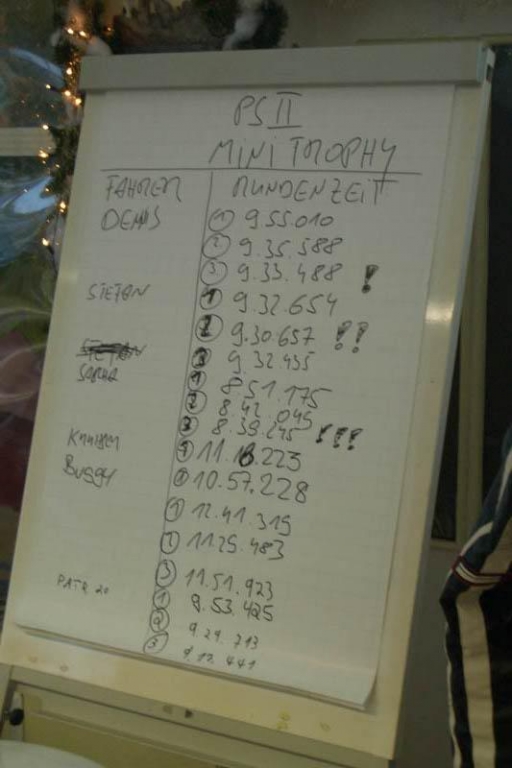 PS II
MINI TROPHY
FAHRER RUNDENZEIT
DENIS ① 9.55.010
② 9.35.588
③ 9.33.488 !
STEFAN ① 9.32.654
② 9.30.657 !!
③ 9.32.435
① 8.51.175
② 8.42.045
③ 8.39.245 !!!
① 11.18.223
Buggy ② 10.57.228
① 12.41.319
② 11.25.483
③ 11.51.923
① 9.53.425
② 9.29.713
③ 9.12.441